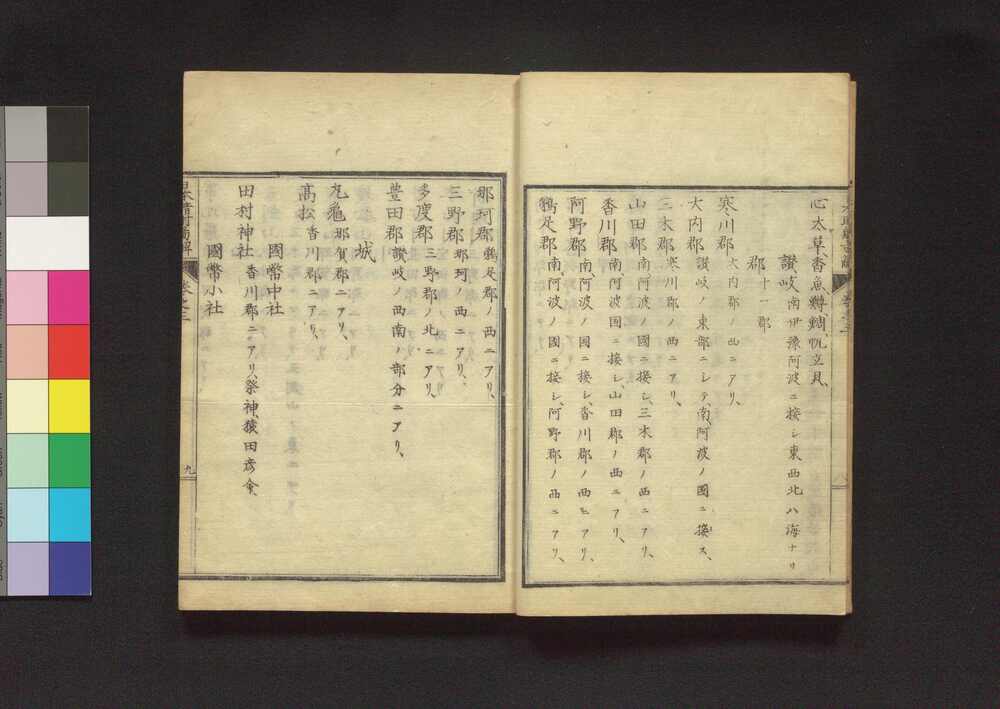 心太草、香魚、鱒、鯛、帆立貝、
讃岐 南伊豫阿波ニ接シ東西北ハ海ナリ
郡 十一郡
寒川郡 大内郡ノ西ニアリ、
大内郡 讃岐ノ東部ニシテ、南、阿波ノ國ニ接ス、
三木郡 寒川郡ノ西ニアリ、
山田郡 南、阿波ノ國ニ接シ、三木郡ノ西ニアリ、
香川郡 南、阿波ノ国ニ接シ、山田郡ノ西ニアリ、
阿野郡 南、阿波ノ国ニ接シ、香川郡ノ西ニアリ、
鵜足郡 南、阿波ノ國ニ接シ、阿野郡ノ西ニアリ、
那珂郡 鵜足郡ノ西ニアリ、
三野郡 那珂ノ西ニアリ、
多度郡 三野郡ノ北ニアリ、
豊田郡 讃岐ノ西南ノ部分ニアリ、
城
丸亀 那賀郡ニアリ、
高松 香川郡ニアリ、
國幣中社
田村神社 香川郡ニアリ、祭神、猿田彦命、
國幣小社
卷之三
九